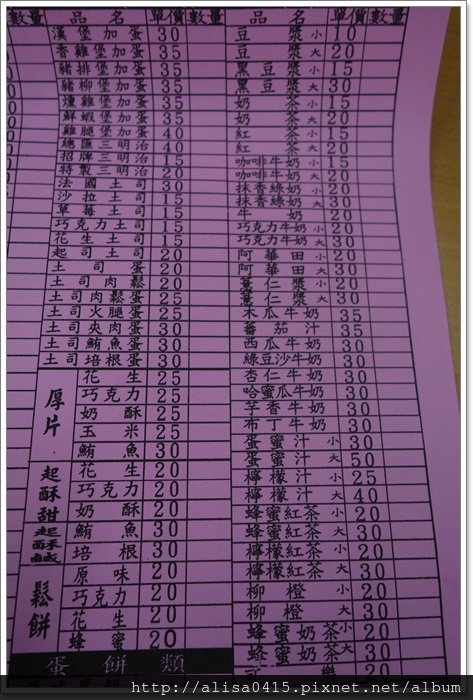 數量 品名 單價 數量 品名 單價 數量
漢堡加蛋 30
香雞堡加蛋 35
豬排堡加蛋 35
豬柳堡加蛋 35
燻雞堡加蛋 35
鮮蝦堡加蛋 35
雞腿堡加蛋 40
總匯三明治 40
招牌三明治 15
特製三明治 20
法國土司 20
沙拉土司 15
草莓土司 15
巧克力土司 15
花生土司 15
起司土司 20
土司蛋 20
土司肉鬆 20
土司肉鬆蛋 25
土司火腿蛋 25
土司夾肉蛋 30
土司鮪魚蛋 30
土司培根蛋 30
厚片
花生 25
巧克力 25
奶酥 25
玉米 25
鮪魚 30
起酥甜
起酥鹹
花生 20
巧克力 20
奶酥 20
鮪魚 30
培根 30
鬆餅
原味 20
巧克力 20
花生 20
蜂蜜 20
蛋餅類
豆漿 小 10
豆漿 大 20
黑豆漿 小 15
黑豆漿 大 30
奶茶 小 15
奶茶 大 20
紅茶 小 10
紅茶 大 20
咖啡牛奶 小 15
咖啡牛奶 大 20
抹香綠奶 小 20
抹香綠奶 大 30
牛奶 20
巧克力牛奶 小 20
巧克力牛奶 大 30
阿華田 小 20
阿華田 大 30
薏仁漿 小 20
薏仁漿 大 30
木瓜牛奶 35
蕃茄汁 35
西瓜牛奶 30
綠豆沙牛奶 30
杏仁牛奶 30
哈蜜瓜牛奶 30
芋香牛奶 30
布丁牛奶 30
蛋蜜汁 小 30
蛋蜜汁 大 50
檸檬汁 小 25
檸檬汁 大 40
蜂蜜紅茶 小 20
蜂蜜紅茶 大 30
檸檬紅茶 小 20
檸檬紅茶 大 30
柳橙 小 20
柳橙 大 30
蜂蜜奶茶 小 20
蜂蜜奶茶 大 30
可樂 20
http://alisa0415.pixnet.net/album